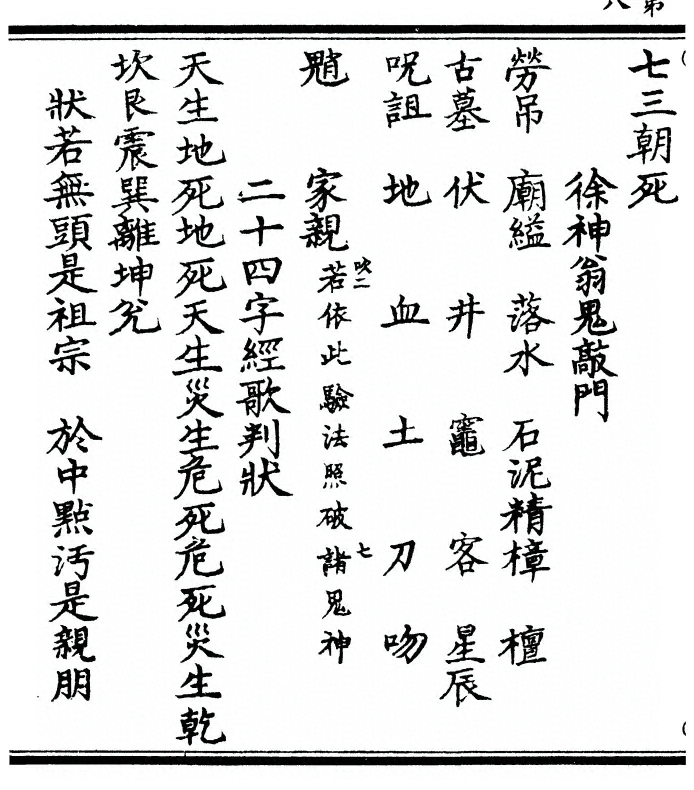 第八
七三朝死
徐神翁鬼敲門
勞吊 廟縊 落水 石泥精樟 檀
古墓 伏 井 竈 客 星辰
呪詛 地 血 土 刀 吻
家親 吹二 若依此驗法照破諸七鬼神
二十四字經歌判狀
天生地死地死天生災生危死危死災生乾
坎艮震巽離坤兌
狀若無頭是祖宗 於中點汚是親朋